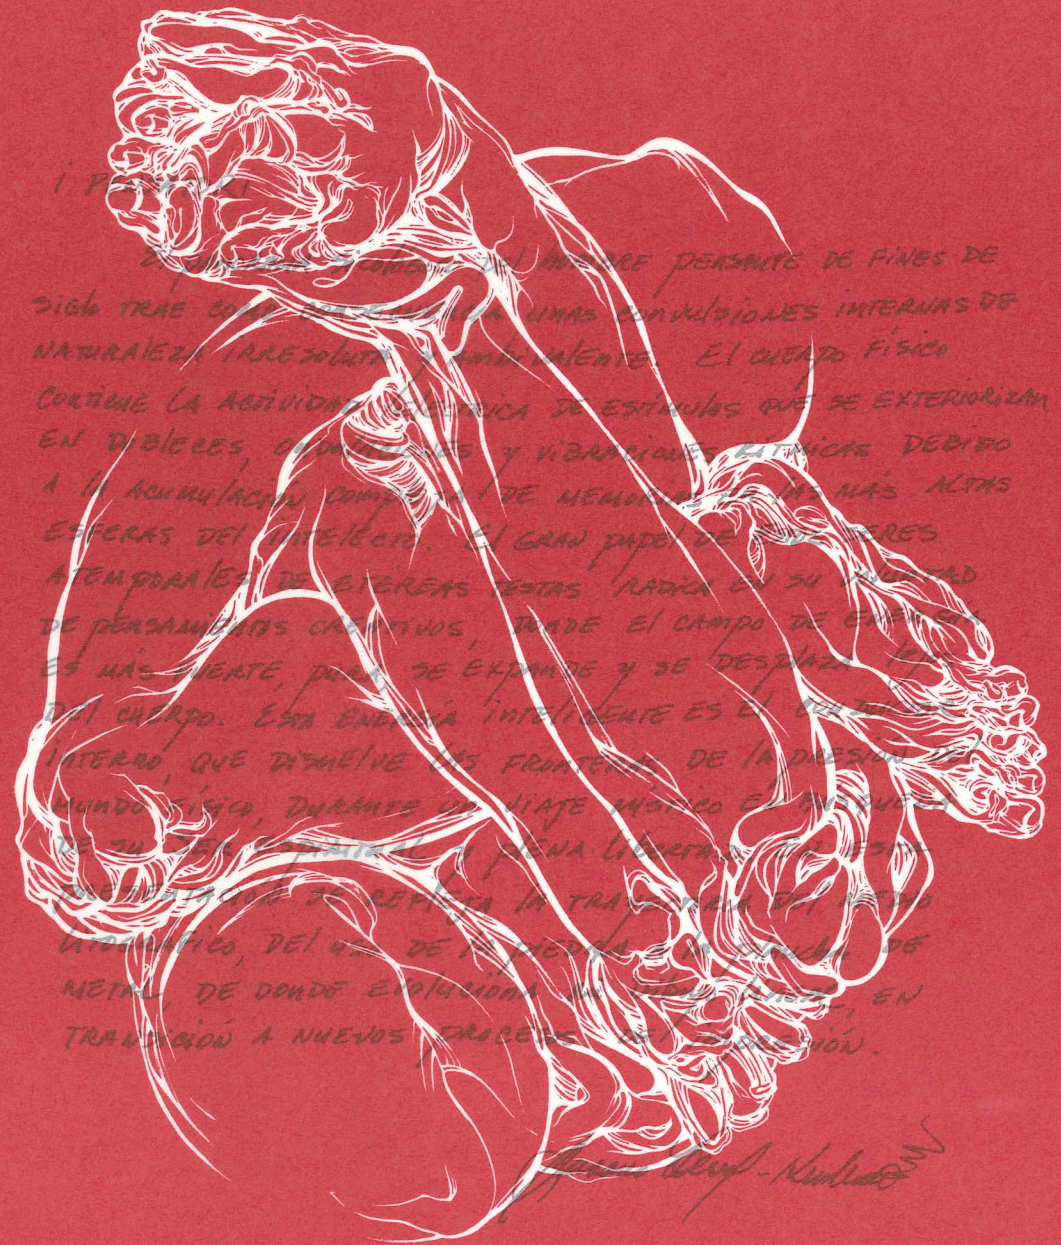 I PENSATORI
El universo y colectivo del hombre pensante de fines de
siglo trae como consecuencia unas convulsiones internas de
naturaleza irresoluta y ambivalente. El cuerpo físico
contiene la actividad eléctrica de estímulos que se exteriorizan
en dobleces, ondulaciones y vibraciones rítmicas debido
a la acumulación compleja de memorias de las más altas
esferas del intelecto. El gran papel de estos seres
atemporales de etereas testas radica en su
de pensamientos creativos, donde el campo de energía
es más fuerte, pura, se expande y se desplaza lejos
del cuerpo. Esta energía inteligente es el
interno, que disuelve las fronteras de la presión del
mundo físico, durante un viaje místico en búsqueda
de su ser espiritual y plena libertad. En esta
presentación se refleja la trayectoria del medio
litográfico, del uso de la piedra a la plancha de
metal, de donde evoluciona en
transición a nuevos procesos de impresión.